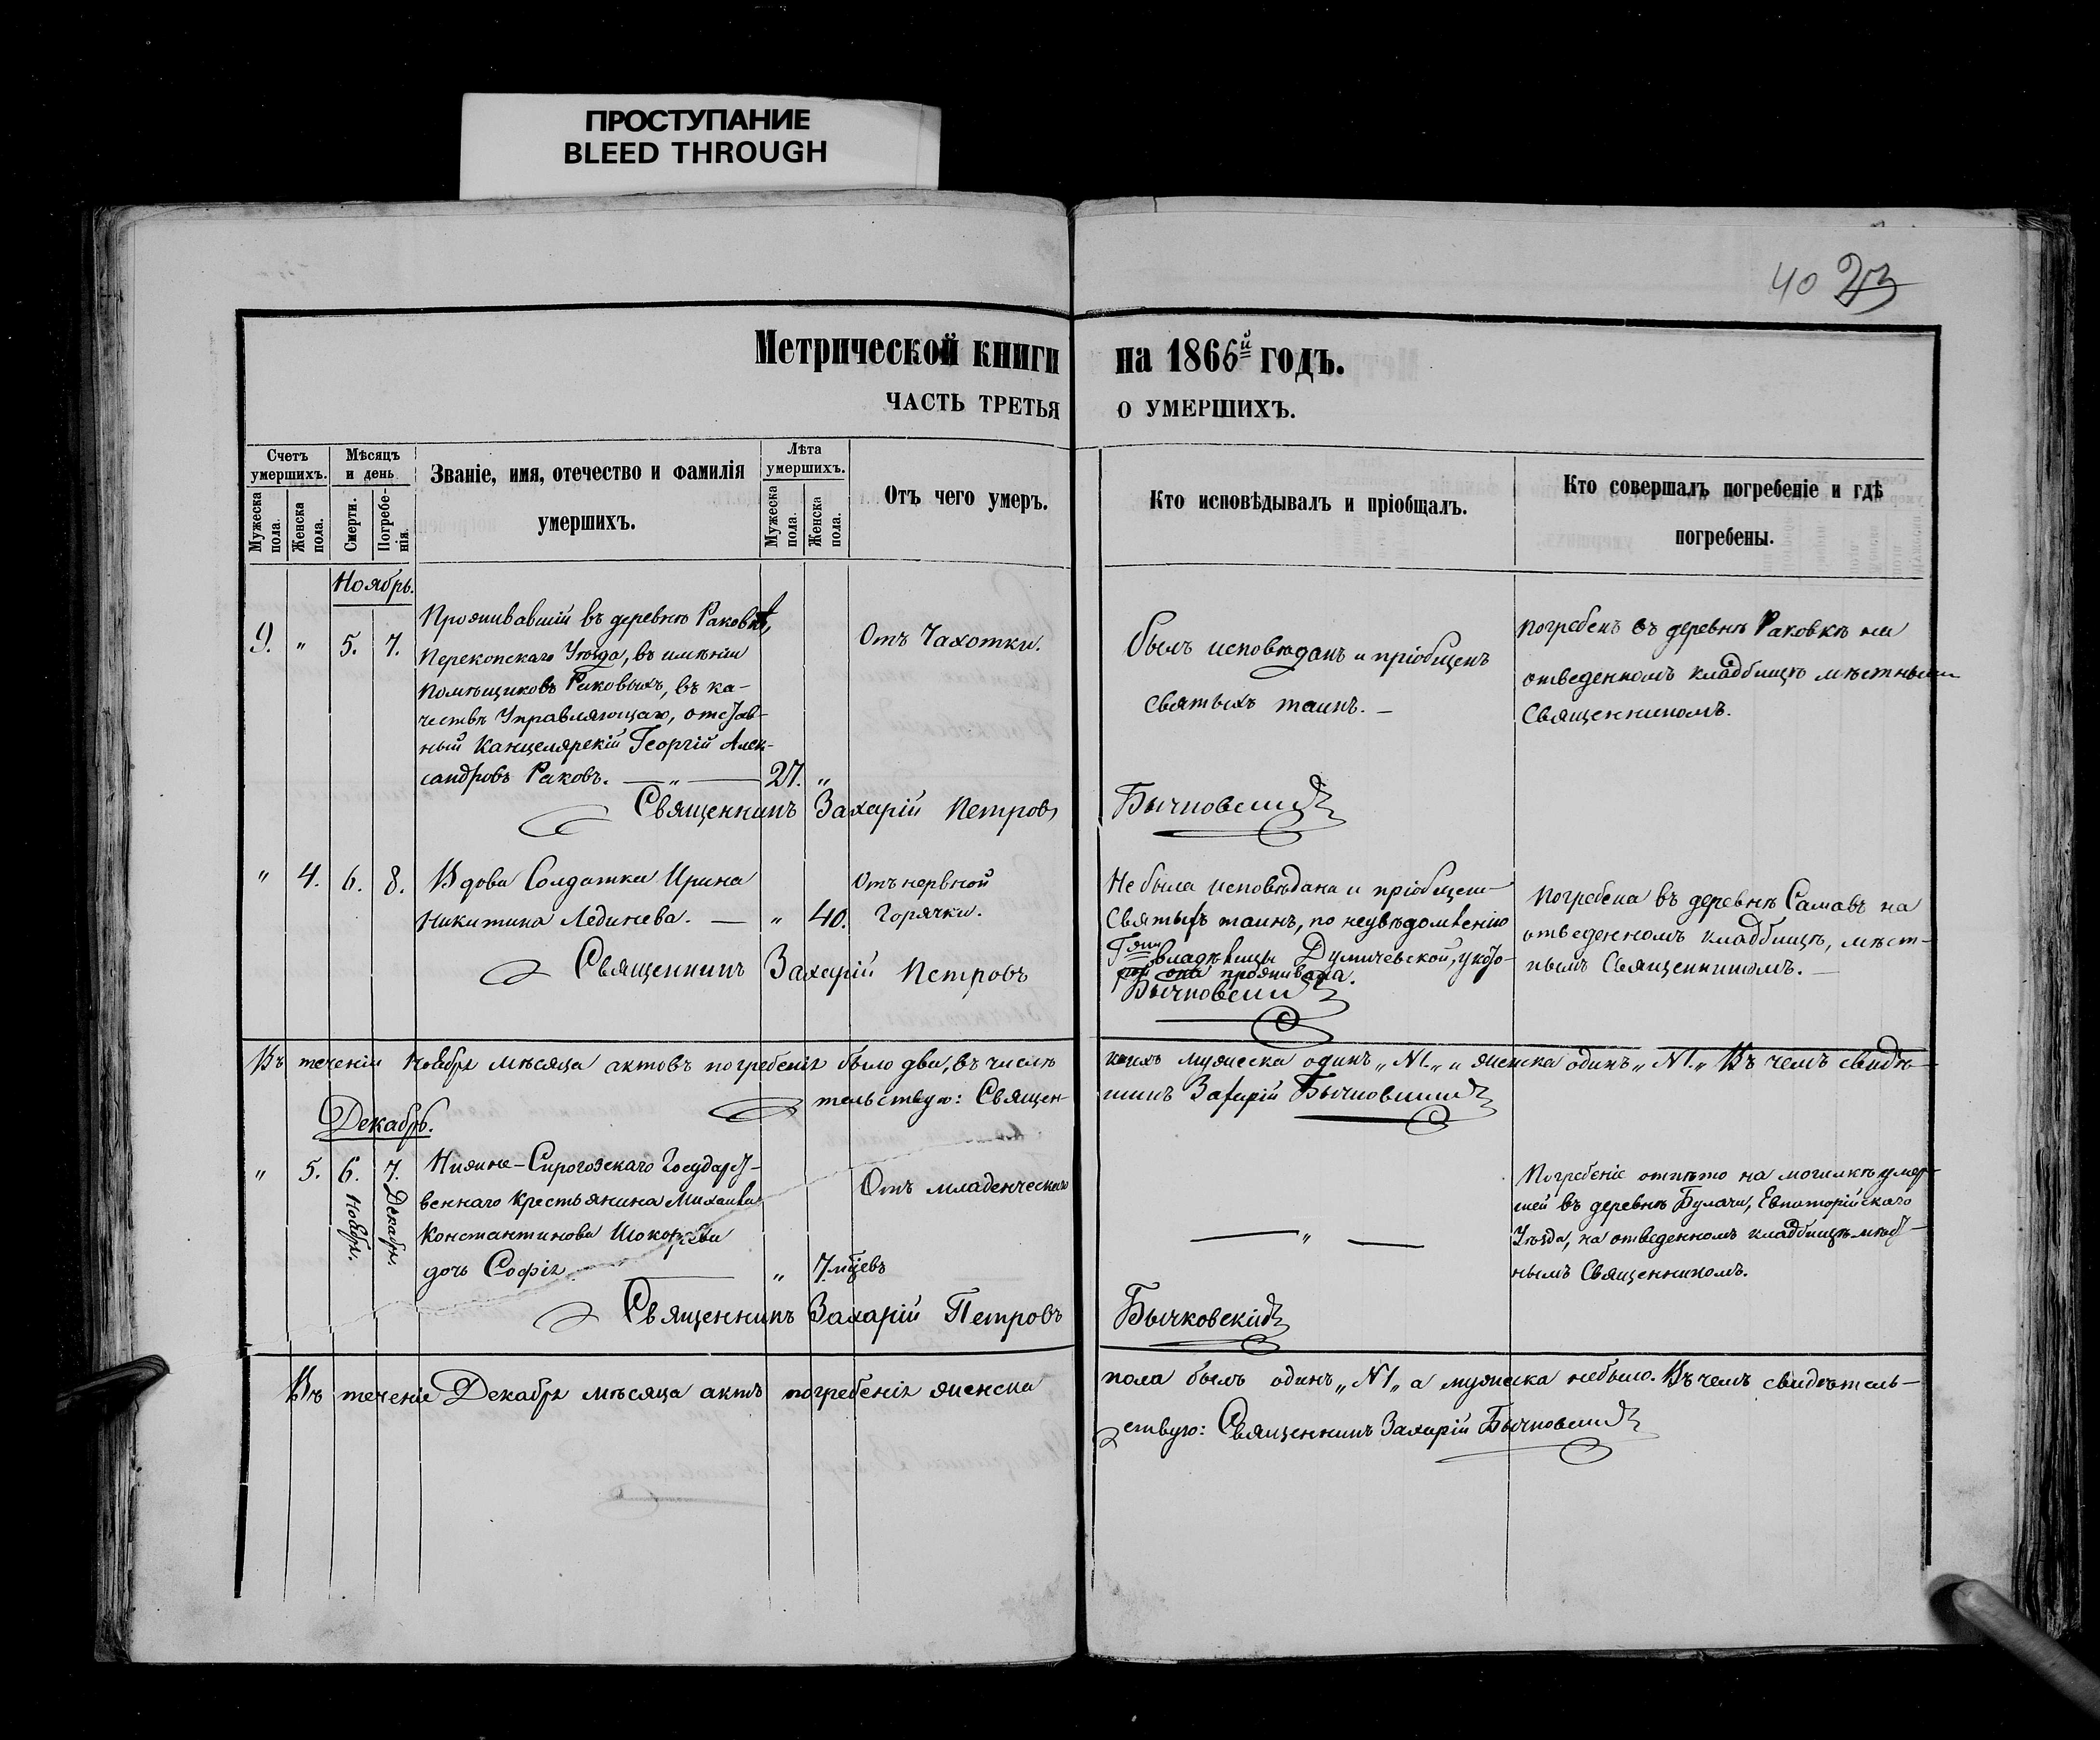 ПРОСТУПАНИЕ
BLEED THROUGH
40 23
Метрической книги на 1866й годъ.
ЧАСТЬ ТРЕТЬЯ О УМЕРШИХЪ.
Счетъ умершихъ.
Мужеска пола.
Женска пола.
Мѣсяцъ и день
Смерти.
Погребенія.
Званіе, имя, отечество и фамилія
умершихъ.
Лѣта умершихъ.
Мужеска пола.
Женска пола.
Отъ чего умеръ.
Кто исповѣдывалъ и пріобщалъ.
Кто совершалъ погребеніе и гдѣ
погребены.
Ноябрь.
9. " 5. 7.
Проживавшій въ деревнѣ Раковкѣ,
Перекопскаго Уѣзда, въ имѣніи
Помѣщиковъ Раковыхъ, въ ка-
чествѣ Управляющаго, отстав-
ный Канцелярскій Георгій Алек-
сандровъ Раковъ. — " — 27. "
Отъ Чахотки.
Былъ исповѣданъ и пріобщенъ
святыхъ таинъ. —
Погребенъ въ деревнѣ Раковкѣ на
отведенномъ кладбищѣ мѣстнымъ
Священникомъ.
Священникъ Захарій Петровъ Бычковскій
" 4. 6. 8.
Вдова Солдатка Ирина
Никитина Лединева. — " 40.
Отъ нервной
Горячки.
Не была исповѣдана и пріобщена
Святыхъ таинъ, по неувѣдомленію
владѣлицы Думичевской, у кото-
рой она проживала.
Погребена въ деревнѣ Самавъ на
отведенномъ кладбищѣ, мѣст-
нымъ Священникомъ. —
Священникъ Захарій Петровъ Бычковскій
Въ теченіи Ноября мѣсяца актовъ погребенія было два, въ числѣ коихъ мужеска одинъ „N1„ и женска одинъ „N1.„ Въ чемъ свидѣ-
тельствую: Священникъ Захарій Бычковскій
Декабрь.
" 5. 6. 7.
Ноября.
Декабря.
Нижне-Сирогозскаго Государст-
веннаго крестьянина Михаила
Константинова
дочь Софія. — " 7 мцевъ
Отъ младенческаго
— " —
Погребеніе отпѣто на могилкѣ умер-
шей въ деревнѣ Булачи, Евпаторійскаго
Уѣзда, на отведенномъ кладбищѣ мѣст-
нымъ Священникомъ.
Священникъ Захарій Петровъ Бычковскій
Въ теченіе Декабря мѣсяца актъ погребенія женска пола былъ одинъ „N1„ а мужеска небыло. Въ чемъ свидѣтель-
ствую: Священникъ Захарій Бычковскій